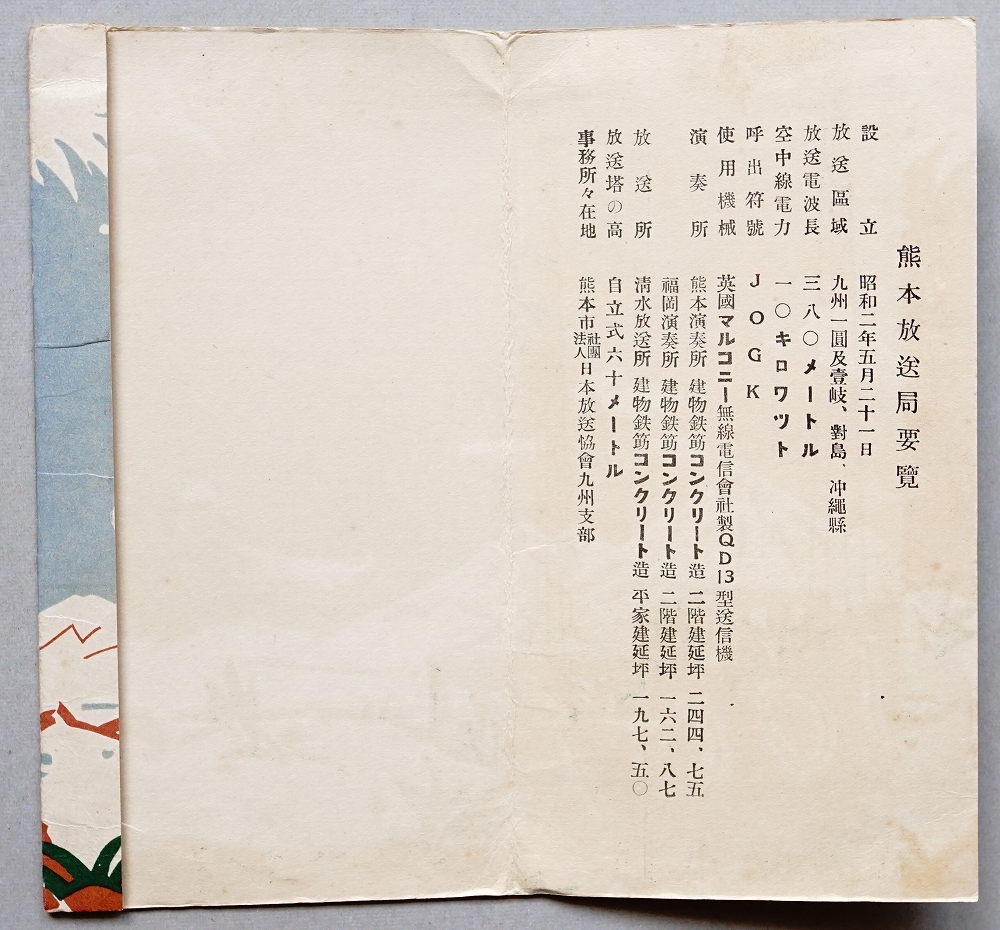 熊本放送局要覽
設立 昭和二年五月二十一日
放送區域 九州一圓及壹岐、對島、冲繩縣
放送電波長 三八〇メートル
空中線電力 一〇キロワツト
呼出符號 JOGK
使用機械 英國マルコニー無線電信會社製QD13型送信機
演奏所 熊本演奏所 建物鉄筋コンクリート造 二階建延坪 二四四、七五
福岡演奏所 建物鉄筋コンクリート造 二階建延坪 一六二、八七
放送所 淸水放送所 建物鉄筋コンクリート造 平家建延坪 一九七、五〇
放送塔の高 自立式六十メートル
事務所々在地 熊本市社團法人日本放送協會九州支部